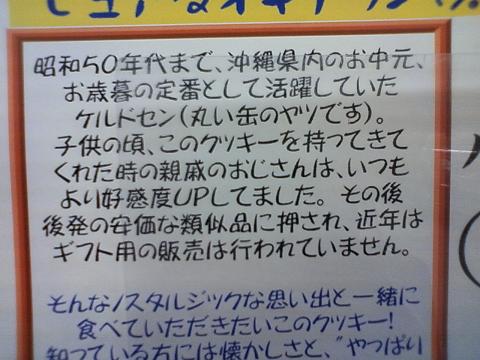 昭和50年代まで、沖縄県内のお中元、
お歳暮の定番として活躍していた
ケルドセン(丸い缶のヤツです)。
子供の頃、このクッキーを持ってきて
くれた時の親戚のおじさんは、いつも
より好感度UPしてました。その後
後発の安価な類似品に押され、近年は
ギフト用の販売は行われていません。
そんなノスタルジックな思い出と一緒に
食べていただきたいこのクッキー!
知っている方には懐かしさと、"やっぱり